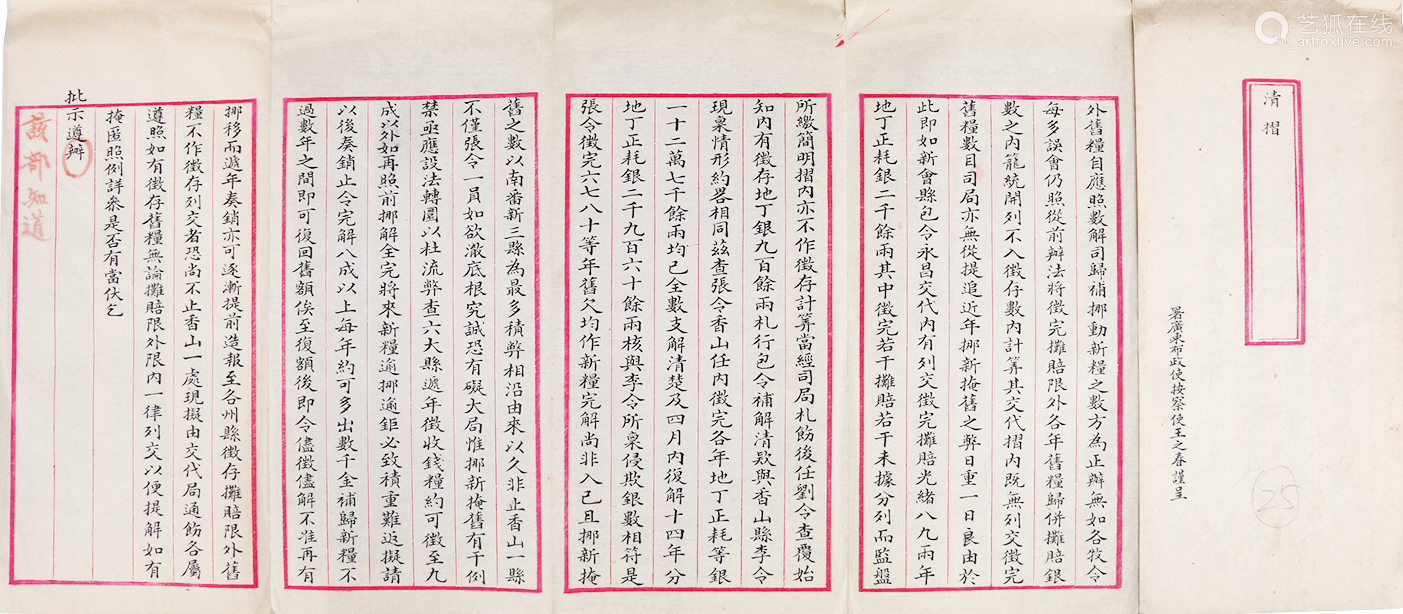 艺狐在线
artfoxlive.com
清摺
署廣東布政使按察使王之春謹呈
25
外舊糧自應照數解司歸補挪動新糧之數方為正辦無如各牧令
每多誤會仍照從前辦法將徵完攤賠限外各年舊糧歸併攤賠銀
數之內籠統開列不入徵存數內計算其交代摺內既無列交徵完
舊糧數目司局亦無從提追近年挪新掩舊之弊日重一日良由於
此即如新會縣包令永昌交代內有列交徵完攤賠光緒八九兩年
地丁正耗銀二千餘兩其中徵完若干攤賠若干未據分列而監盤
所繳簡明摺內亦不作徵存計算當經司局札飭後任劉令查覆始
知內有徵存地丁銀九百餘兩札行包令補解清欵與香山縣李令
現稟情形約畧相同茲查張令香山任內徵完各年地丁正耗等銀
一十二萬七千餘兩均已全數支解清楚及四月內復解十四年分
地丁正耗銀二千九百六十餘兩核與李令所稟侵欺銀數相符是
張令徵完六七八十等年舊欠均作新糧完解尚非入已且挪新掩
舊之數以南番新三縣為最多積弊相沿由來以久非止香山一縣
不僅張令一員如欲澈底根究誠恐有礙大局惟挪新掩舊有干例
禁亟應設法轉圜以杜流弊查六大縣遞年徵收錢糧約可徵至九
成以外如再照前挪解全完將來新糧逾挪逾鉅必致積重難返擬請
以後奏銷止令完解八成以上每年約可多出數千金補歸新糧不
過數年之間即可復回舊額俟至復額後即令儘徵儘解不准再有
挪移而遞年奏銷亦可逐漸提前造報至各州縣徵存攤賠限外舊
糧不作徵存列交者恐尚不止香山一處現擬由交代局通飭各屬
遵照如有徵存舊糧無論攤賠限外限內一律列交以便提解如有
掩匿照例詳叅是否有當伏乞
批示遵辦